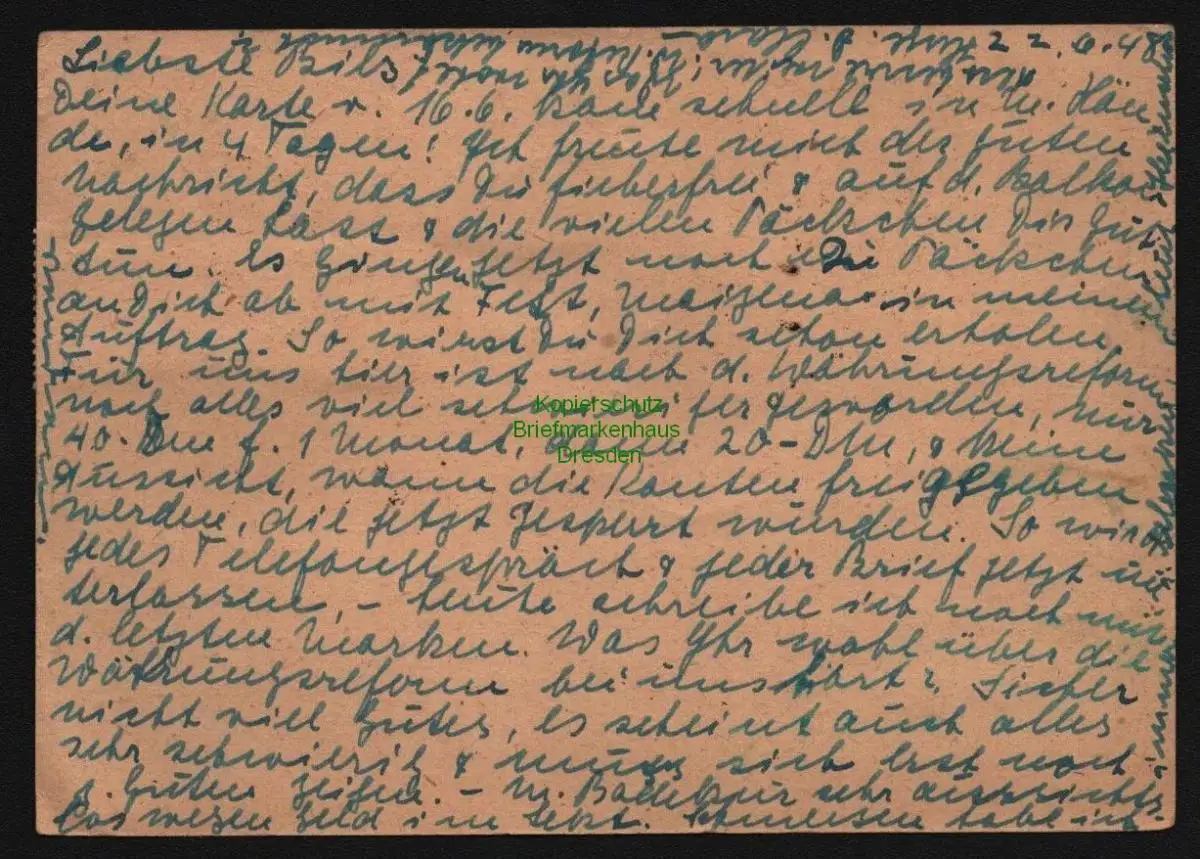 22.6.48
Liebste Bils!
Deine Karte v. 16.6. kam schnell in m. Hän-
de, in 4 Tagen! Ich freute mich der guten
Nachricht, dass Du fieberfrei & auf d. Balkon
gelegen hast & die vielen Päckchen Dir gut
tun. Es gingen jetzt noch Päckchen
an Dich ab mit Fett, Maizena in meinem
Auftrag. So wirst Du Dich schon erholen.
Für uns hier ist nach d. Währungsreform
noch alles viel geworden, nur
40.- DM f. 1 Monat, dann 20-DM, & keine
Aussicht, wann die Konten freigegeben
werden, die jetzt gesperrt wurden. So wird
jedes Telefongespräch & jeder Brief jetzt un-
terlassen, - heute schreibe ich noch mit
d. letzten Marken. Was Ihr wohl über die
Währungsreform bei uns hört? Sicher
nicht viel Gutes, es scheint auch alles
sehr schwierig & muss sich erst noch
z. Guten zeigen. - M. Badekur sehr aussichts-
los wegen Geld im Sept. habe ich
Kopierschutz
Briefmarkenhaus
Dresden